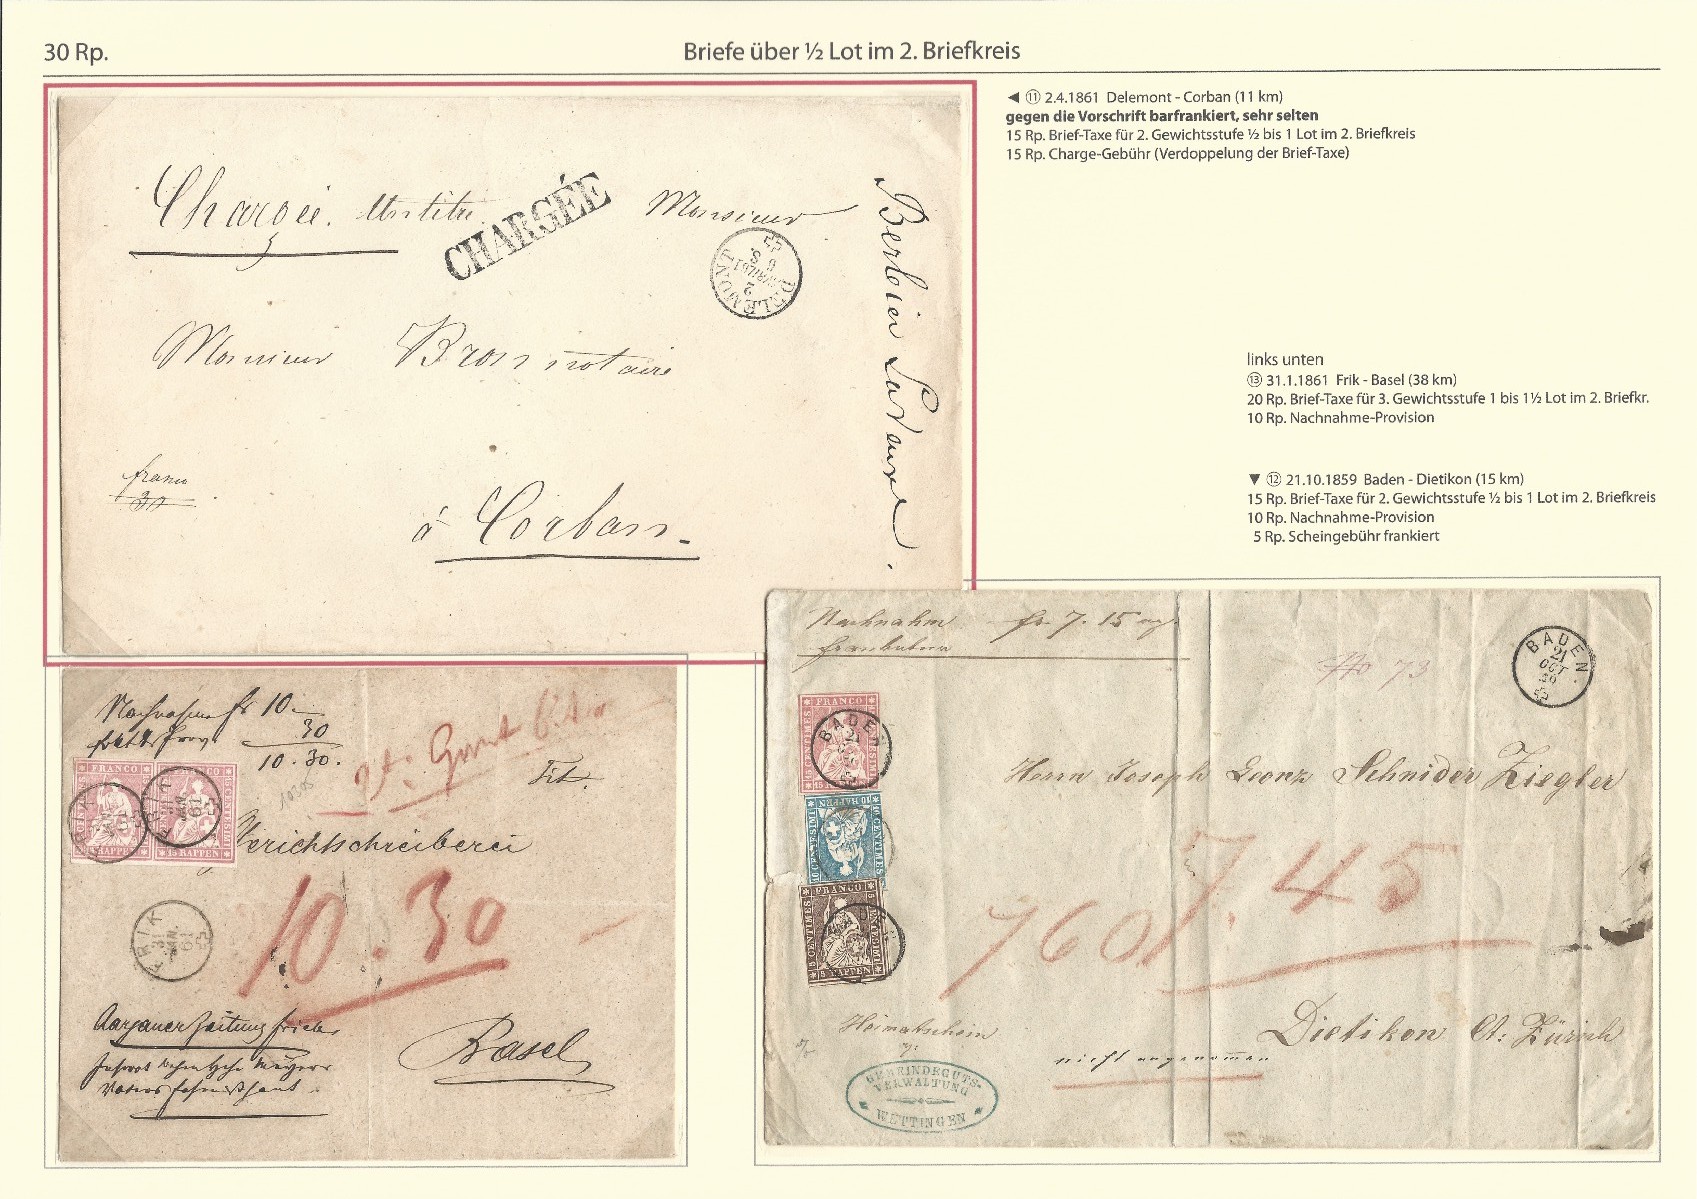 30 Rp.
Briefe über ½ Lot im 2. Briefkreis
◄ ⑪ 2.4.1861 Delemont - Corban (11 km)
gegen die Vorschrift barfrankiert, sehr selten
15 Rp. Brief-Taxe für 2. Gewichtsstufe ½ bis 1 Lot im 2. Briefkreis
15 Rp. Charge-Gebühr (Verdoppelung der Brief-Taxe)
Chargée.
Monsieur
CHARGÉE
DELEMONT
2
AVRIL 61
6 S
Monsieur Bros notaire
franco
30
à Corban
links unten
⑬ 31.1.1861 Frik - Basel (38 km)
20 Rp. Brief-Taxe für 3. Gewichtsstufe 1 bis 1½ Lot im 2. Briefkr.
10 Rp. Nachnahme-Provision
▼ ⑫ 21.10.1859 Baden - Dietikon (15 km)
15 Rp. Brief-Taxe für 2. Gewichtsstufe ½ bis 1 Lot im 2. Briefkreis
10 Rp. Nachnahme-Provision
5 Rp. Scheingebühr frankiert
Nachnahme fr 10 –
30
10.30.
Tit.
FRANCO
15 RAPPEN
Gerichtschreiberei
10.30
FRIK
31
JAN.
61
Basel
Nachnahm fr. 7. 15
No 73
BADEN
21
OCT
59
FRANCO
15 CENTIMES
BADEN
21
10 RAPPEN
10 CENTIMES
FRANCO
5 CENTIMES
5 RAPPEN
Herrn Joseph Leonz Schnider Ziegler
7.45
760
Dietikon Ct: Zürich
Heimatschein
nicht angenommen
GEMEINDEGUTS-
VERWALTUNG
WETTINGEN